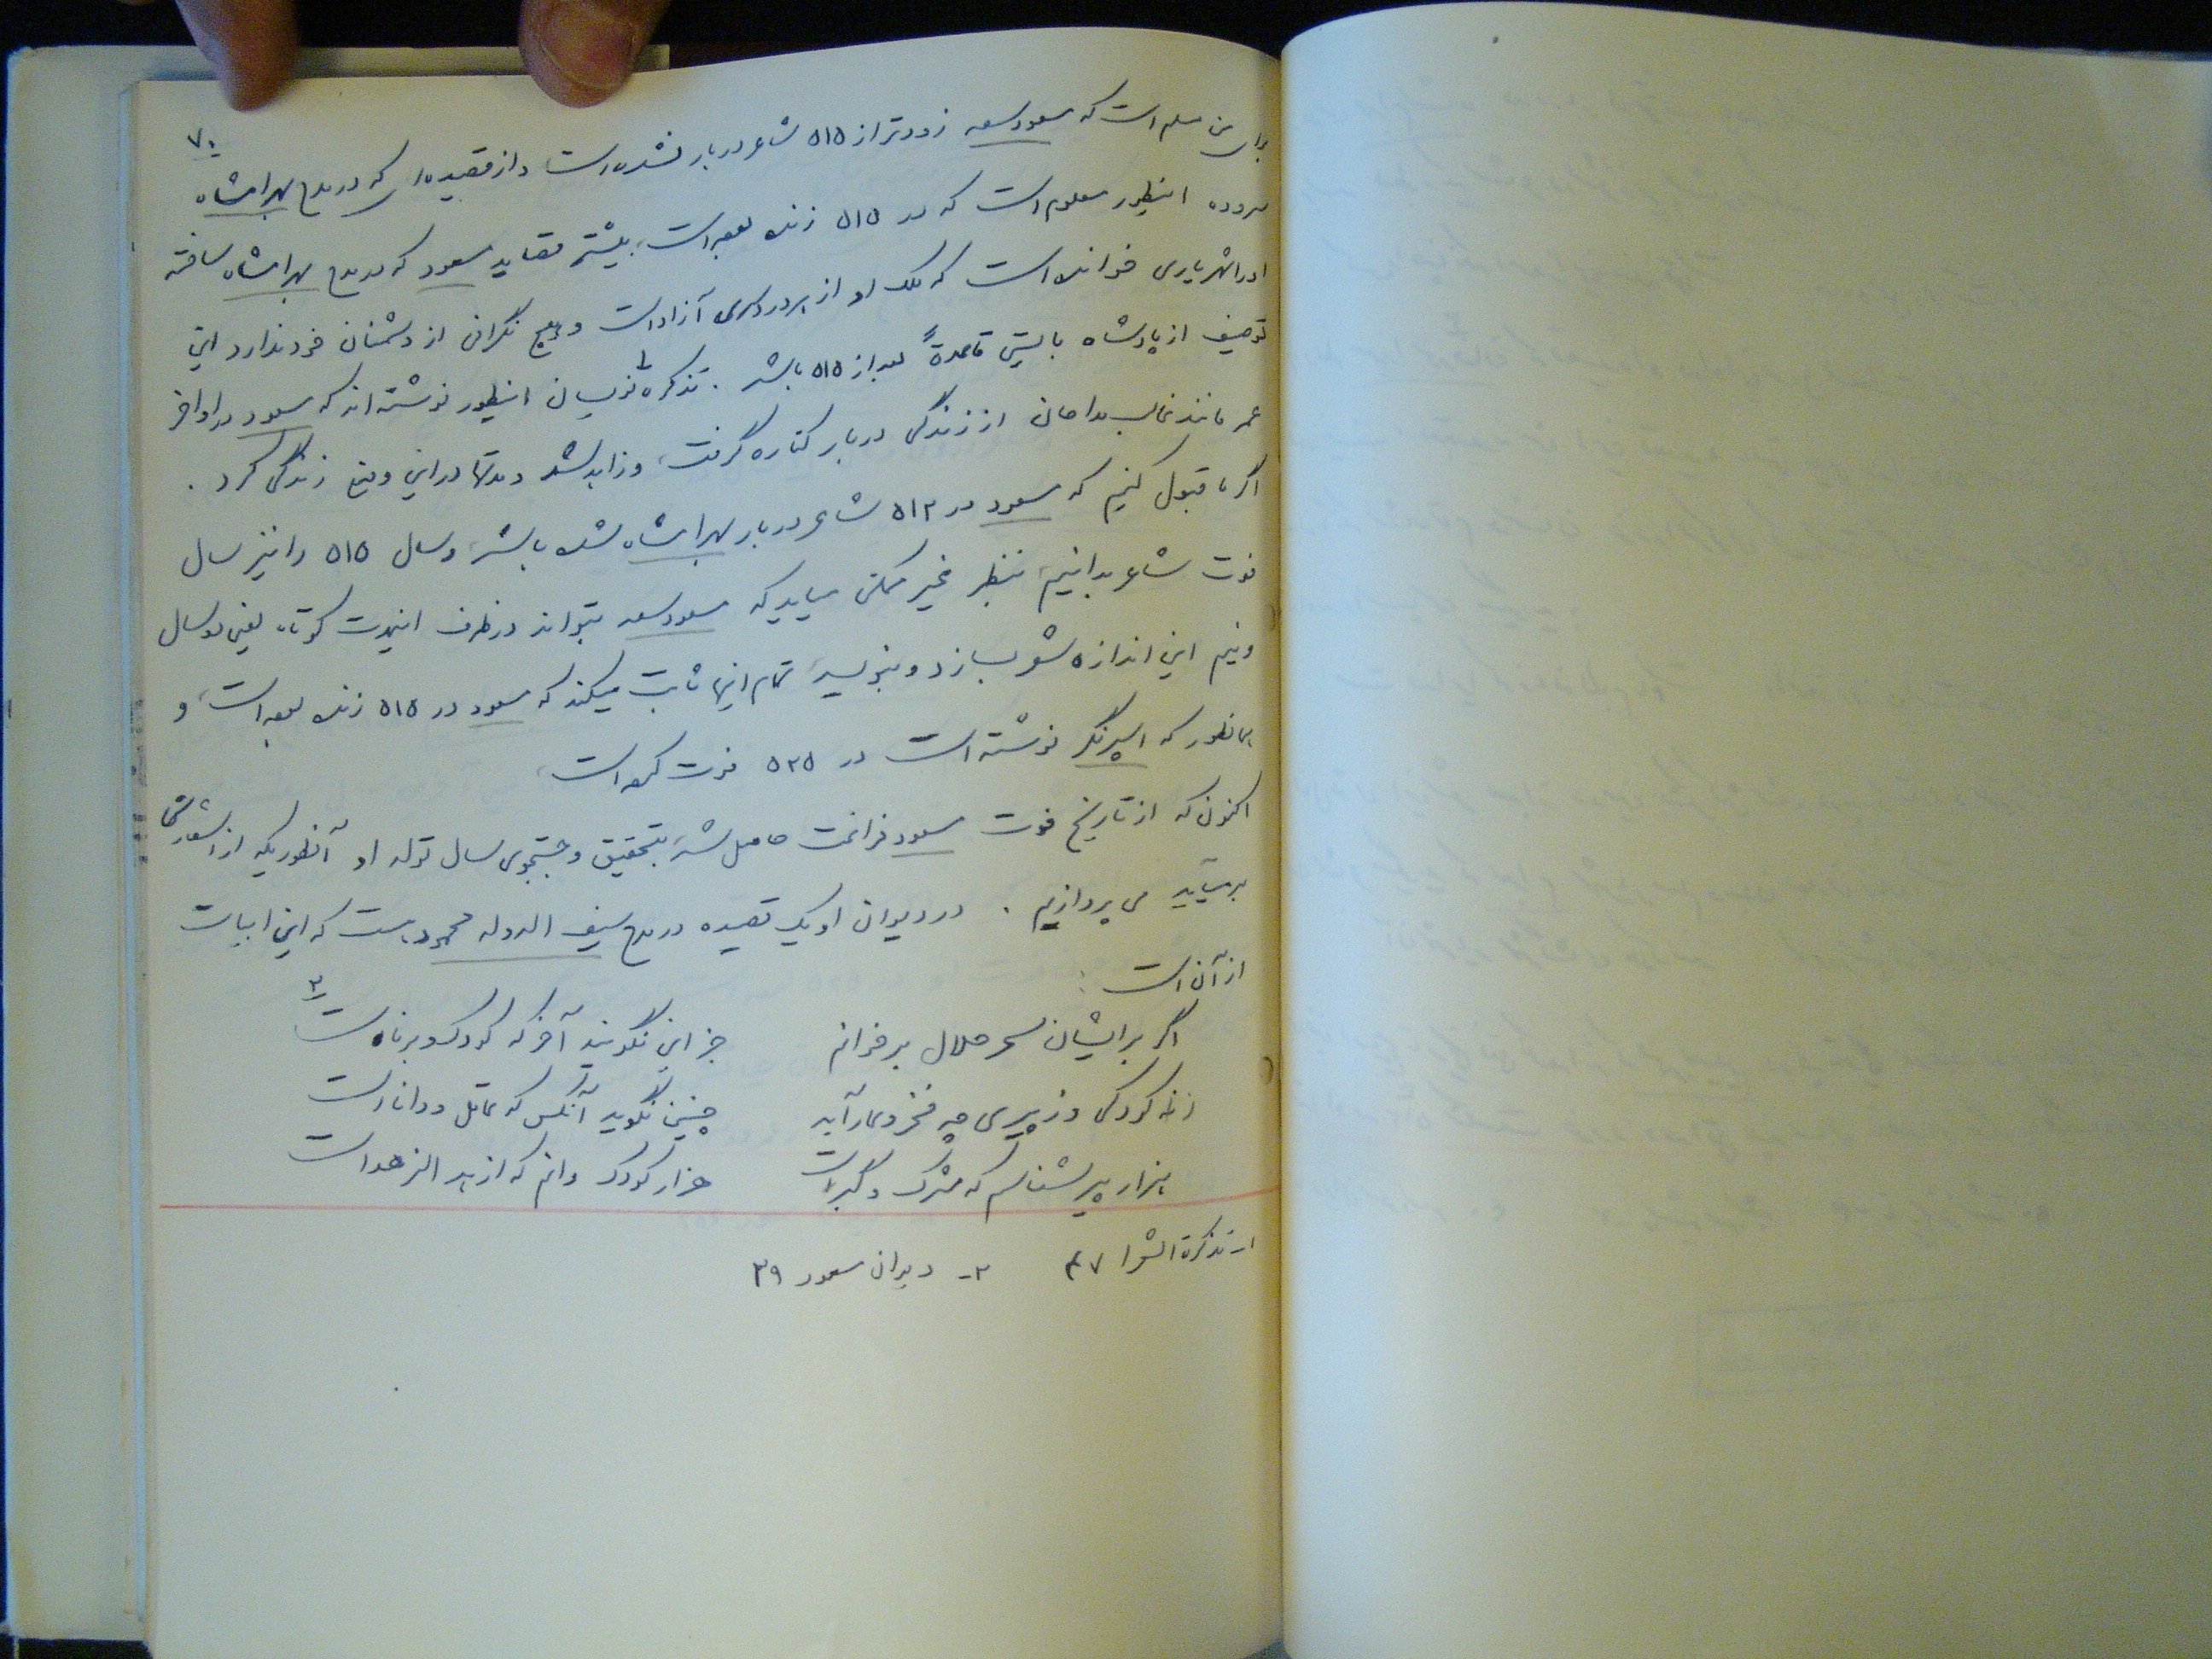 ۷۰
برای من مسلم است که مسعود سعد زودتر از ۵۱۵ شاعر دربار نشده است و از قصیده‌ای که در مدح بهرامشاه
سروده اینطور معلوم است که در ۵۱۵ زنده بوده است، بیشتر قصاید مسعود که در مدح بهرامشاه ساخته
او را شهریاری خوانده است که ملک او از هر دردسری آزاد است و هیچ نگرانی از دشمنان خود ندارد این
توصیف از پادشاه بایستی قاعدةً بعد از ۵۱۵ باشد . تذکره نویسان ۱ اینطور نوشته‌اند که مسعود در اواخر
عمر مانند غالب مداحان از زندگی دربار کناره گرفت، و زاهد شد و مدتها در این وضع زندگی کرد .
اگر ما قبول کنیم که مسعود در ۵۱۲ شاعر دربار بهرامشاه شده باشد، و سال ۵۱۵ را نیز سال
فوت شاعر بدانیم، بنظر غیر ممکن میاید که مسعود سعد بتواند در ظرف اینمدت کوتاه یعنی دو سال
و نیم این اندازه شعر بسازد و بنویسد، تمام اینها ثابت میکند که مسعود در ۵۱۵ زنده بوده است، و
همانطور که اسپرنگر نوشته است در ۵۲۵ فوت کرده است،
اکنون که از تاریخ فوت مسعود فراغت حاصل شد، بتحقیق و جستجوی سال تولد او آنطوریکه از اشعارش
برمیآید می پردازیم . در دیوان او یک قصیده در مدح سیف الدوله محمود هست که این ابیات
از آن است :
اگر بر ایشان سحر حلال برخوانم جز این نگویند آخر که کودک و برناه است ۲
ز نه کودکی و ز پیری چه فخر و عار آید چنین نگوید آنکس که عاقل و داناست
هزار پیر شناسم که مشرک و گبر است هزار کودک دانم که ازهد الزهداست
۱ـ تذکرة الشعرا ۴۷ ۲ـ دیوان مسعود ۳۹